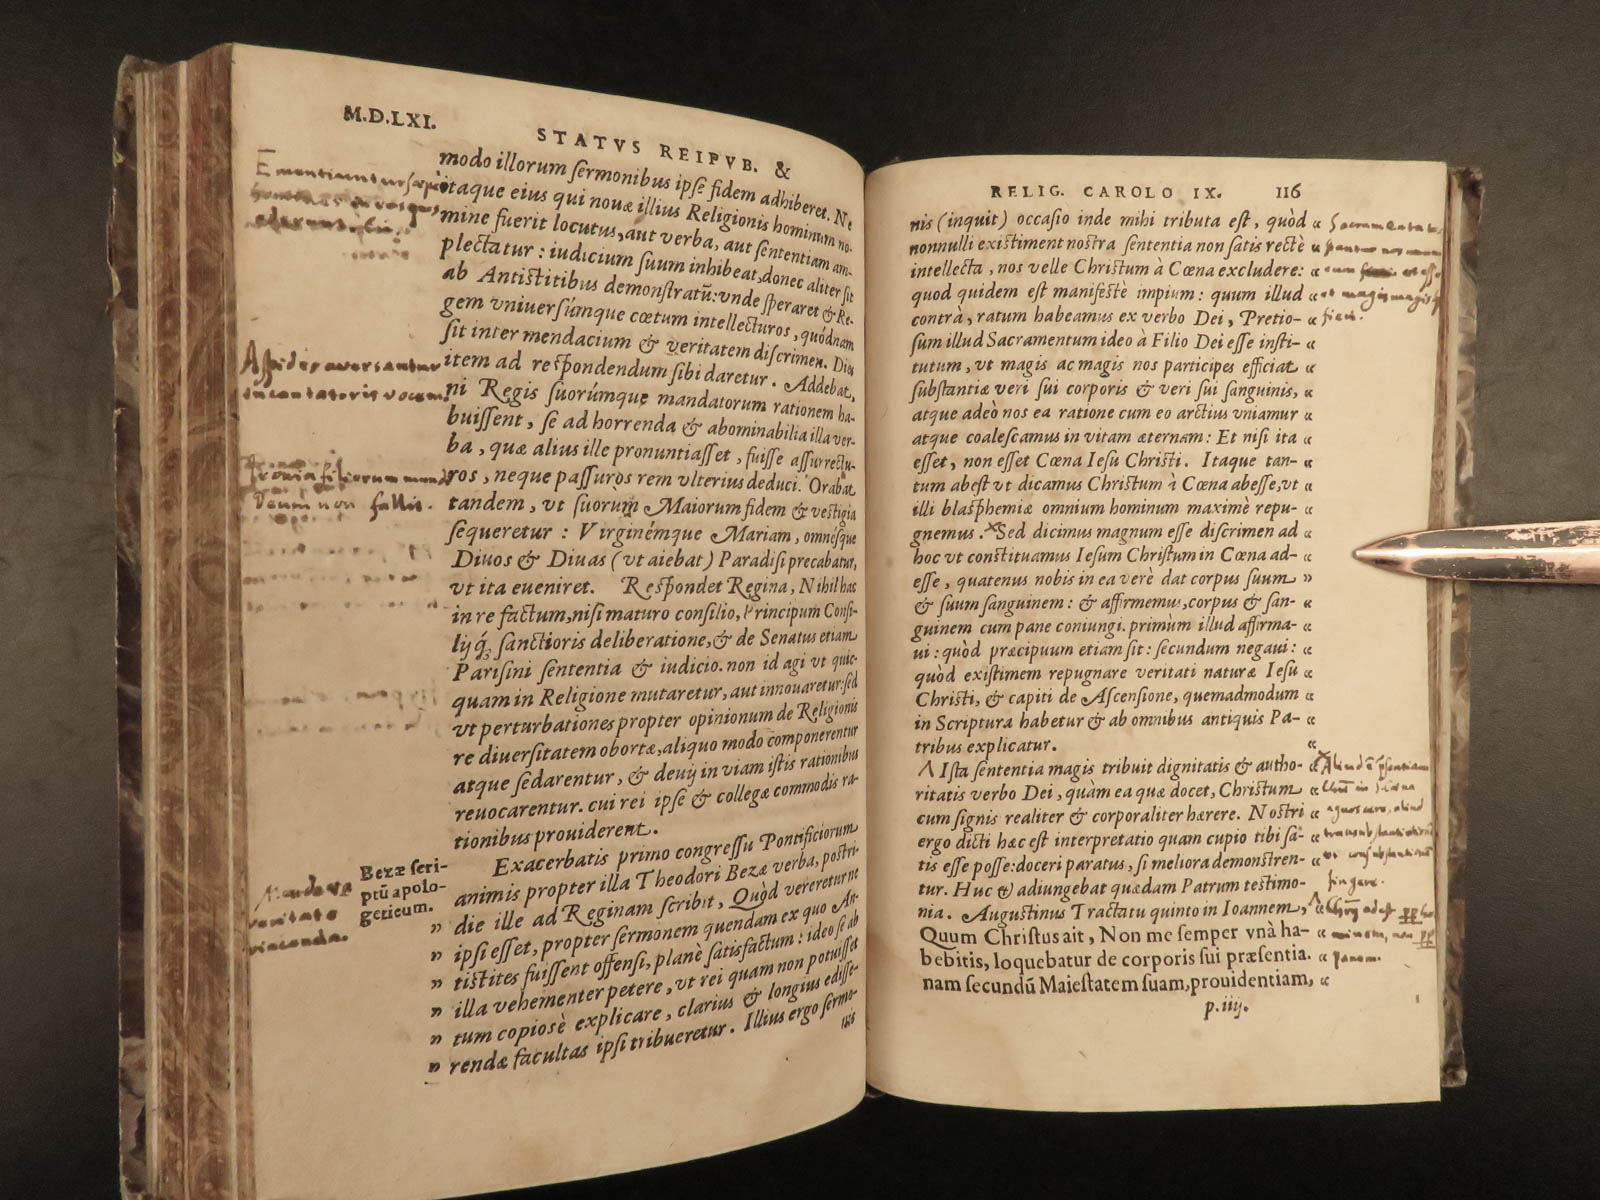 M.D.LXI.
STATVS REIPVB. &
modo illorum sermonibus ipse fidem adhiberet. Ne
itaque eius qui nouæ illius Religionis hominum no-
mine fuerit locutus, aut verba, aut sententiam am-
plectatur: iudicium suum inhibeat, donec aliter sit
ab Antistitibus demonstratū: vnde speraret & Re-
gem vniuersúmque cœtum intellecturos, quódnam
sit inter mendacium & veritatem discrimen. Diem
item ad respondendum sibi daretur. Addebat,
ni Regis suorúmque mandatorum rationem ha-
buissent, se ad horrenda & abominabilia illa ver-
ba, quæ alius ille pronuntiasset, fuisse assurrectu-
ros, neque passuros rem vlterius deduci. Orabat
tandem, vt suorum Maiorum fidem & vestigia
sequeretur: Virginémque Mariam, omnésque
Diuos & Diuas (vt aiebat) Paradisi precabatur,
vt ita eueniret. Respondet Regina, Nihil hac
in re factum, nisi maturo consilio, Principum Consi-
lijq́; sanctioris deliberatione, & de Senatus etiam
Parisini sententia & iudicio. non id agi vt quic-
quam in Religione mutaretur, aut innouaretur: sed
vt perturbationes propter opinionum de Religionis
re diuersitatem obortæ, aliquo modo componerentur
atque sedarentur, & deuij in viam istis rationibus
reuocarentur. cui rei ipse & collegæ commodis ra-
tionibus prouiderent.
Exacerbatis primo congressu Pontificiorum
animis propter illa Theodori Bezæ verba, postri-
die ille ad Reginam scribit, Quòd vereretur ne
ipsi esset, propter sermonem quendam ex quo An-
tistites fuissent offensi, planè satisfactum: ideo se ab
illa vehementer petere, vt rei quam non potuisset
tum copiosè explicare, clarius & longius edisse-
rendæ facultas ipsi tribueretur. Illius ergo sermo-
nis
Bezæ scri-
ptū apolo-
geticum.
Aspides aversantur
incantatoris vocem.
Deum non fallis.
veritate
vincenda.
RELIG. CAROLO IX. 116
nis (inquit) occasio inde mihi tributa est, quòd «
nonnulli existiment nostra sententia non satis rectè «
intellecta, nos velle Christum à Cœna excludere: «
quod quidem est manifestè impium: quum illud «
contrà, ratum habeamus ex verbo Dei, Pretio- «
sum illud Sacramentum ideo à Filio Dei esse insti- «
tutum, vt magis ac magis nos participes efficiat «
substantiæ veri sui corporis & veri sui sanguinis, «
atque adeò nos ea ratione cum eo arctius vniamur «
atque coalescamus in vitam æternam: Et nisi ita «
esset, non esset Cœna Iesu Christi. Itaque tan- «
tum abest vt dicamus Christum à Cœna abesse, vt «
illi blasphemiæ omnium hominum maximè repu- «
gnemus. Sed dicimus magnum esse discrimen ad «
hoc vt constituamus Iesum Christum in Cœna ad- «
esse, quatenus nobis in ea verè dat corpus suum »
& suum sanguinem: & affirmemus, corpus & san- «
guinem cum pane coniungi. primum illud affirma- «
ui: quòd præcipuum etiam sit: secundum negaui: «
quòd existimem repugnare veritati naturæ Iesu «
Christi, & capiti de Ascensione, quemadmodum «
in Scriptura habetur & ab omnibus antiquis Pa- «
tribus explicatur. «
Ista sententia magis tribuit dignitatis & autho- «
ritatis verbo Dei, quam ea quæ docet, Christum «
cum signis realiter & corporaliter hærere. Nostri «
ergo dicti hæc est interpretatio quam cupio tibi sa- «
tis esse posse: doceri paratus, si meliora demonstren- «
tur. Huc & adiungebat quædam Patrum testimo- «
nia. Augustinus Tractatu quinto in Ioannem,
Quum Christus ait, Non me semper vnà ha- «
bebitis, loquebatur de corporis sui præsentia. «
nam secundū Maiestatem suam, prouidentiam, «
p.iiij.
fieri.
fingere.
panem.